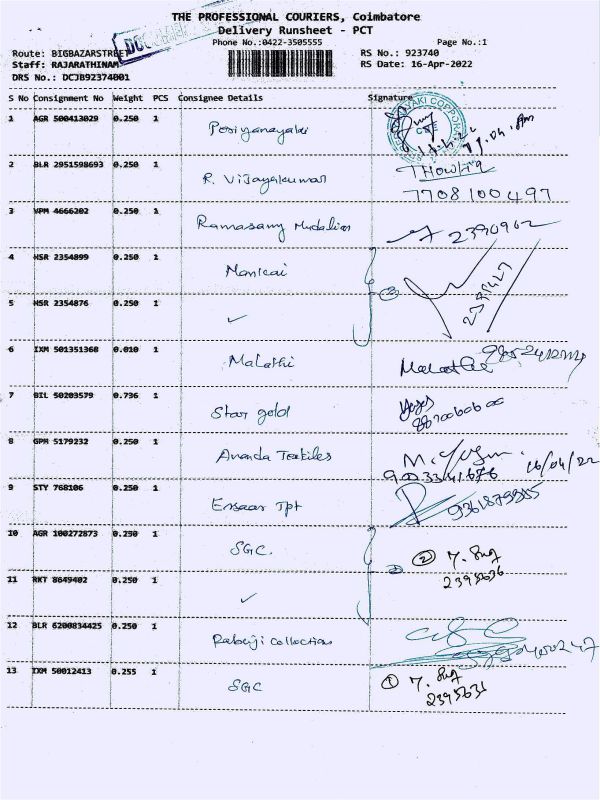 THE PROFESSIONAL COURIERS, Coimbatore
Delivery Runsheet - PCT
Phone No.:0422-3505555 Page No.:1
Route: BIGBAZARSTREET RS No.: 923740
Staff: RAJARATHINAM RS Date: 16-Apr-2022
DRS No.: DCJB92374001
S No Consignment No Weight PCS Consignee Details Signature
1 AGR 500413029 0.250 1 Periyanayaki
2 BLR 2951598693 0.250 1 R. Vijayakumar
7708100497
3 VPM 4666202 0.250 1 Ramasamy Mudaliar 2390902
4 HSR 2354899 0.250 1 Manicai
5 HSR 2354876 0.250 1 ✓
6 IXM 501351368 0.010 1 Malathi
7 BIL 50203579 0.736 1 Star gold
8 GPM 5179232 0.250 1 Ananda Textiles 16/04/22
9 STY 768106 0.250 1 Ensaar Tpt
10 AGR 100272873 0.250 1 SGC.
2395636
11 RKT 8649402 0.250 1 ✓
12 BLR 6200834425 0.250 1 Collection
13 IXM 50012413 0.255 1 SGC
2395635